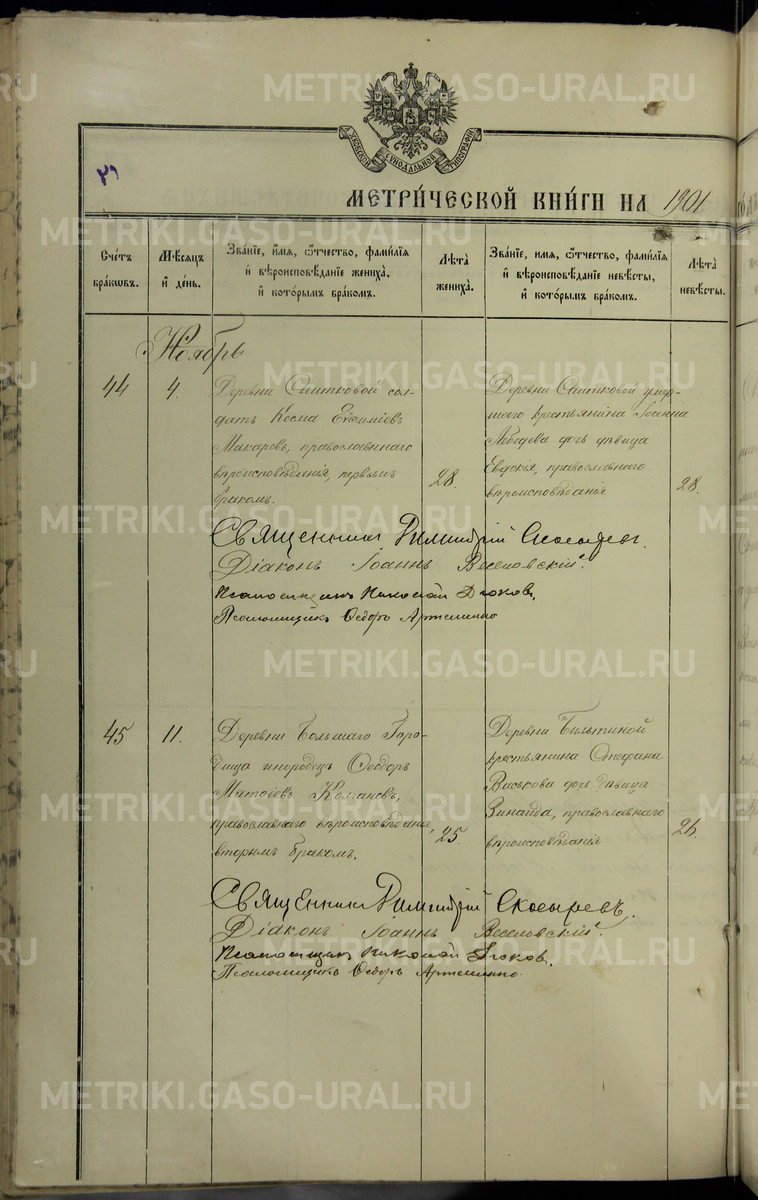 METRIKI.GASO-URAL.RU
МОСКОВСКОЙ СѴНОДАЛЬНОЙ ТИПОГРАФІИ
МЕТРИ́ЧЕСКОЙ КНИ́ГИ НА 1901
Сче́тъ бра́кѡвъ.
Мѣ́сяцъ и҆ де́нь.
Зва́нїе, и҆́мя, ѻ҆́тчество, фами́лїя и҆ вѣроисповѣ́данїе жениха̀, и҆ кото́рымъ бра́комъ.
Лѣ́та жениха̀.
Зва́нїе, и҆́мя, ѻ҆́тчество, фами́лїя и҆ вѣроисповѣ́данїе невѣ́сты, и҆ кото́рымъ бра́комъ.
Лѣ́та невѣ́сты.
Ноябрь
44
4.
Деревни Саитковой сол-
датъ Косма Евѳиміевъ
Макаровъ, православнаго
вѣроисповѣданія, первымъ
бракомъ.
28.
Деревни Саитковой умер-
шаго крестьянина Іоанна
Лебедева дочь дѣвица
Евдокія, православнаго
вѣроисповѣданія
28.
Священникъ Димитрій Скосыревъ.
Діаконъ Іоаннъ Веселовскій.
Псаломщикъ Николай
Псаломщикъ Ѳедоръ
45
11.
Деревни Большаго Горо-
дища инородецъ Ѳеодоръ
Матѳіевъ
православнаго вѣроисповѣданія,
вторымъ бракомъ.
25.
Деревни
крестьянина Стефана
Виськова дочь дѣвица
Зинаида, православнаго
вѣроисповѣданія
26.
Священникъ Димитрій Скосыревъ.
Діаконъ Іоаннъ Веселовскій.
Псаломщикъ Николай
Псаломщикъ Ѳедоръ